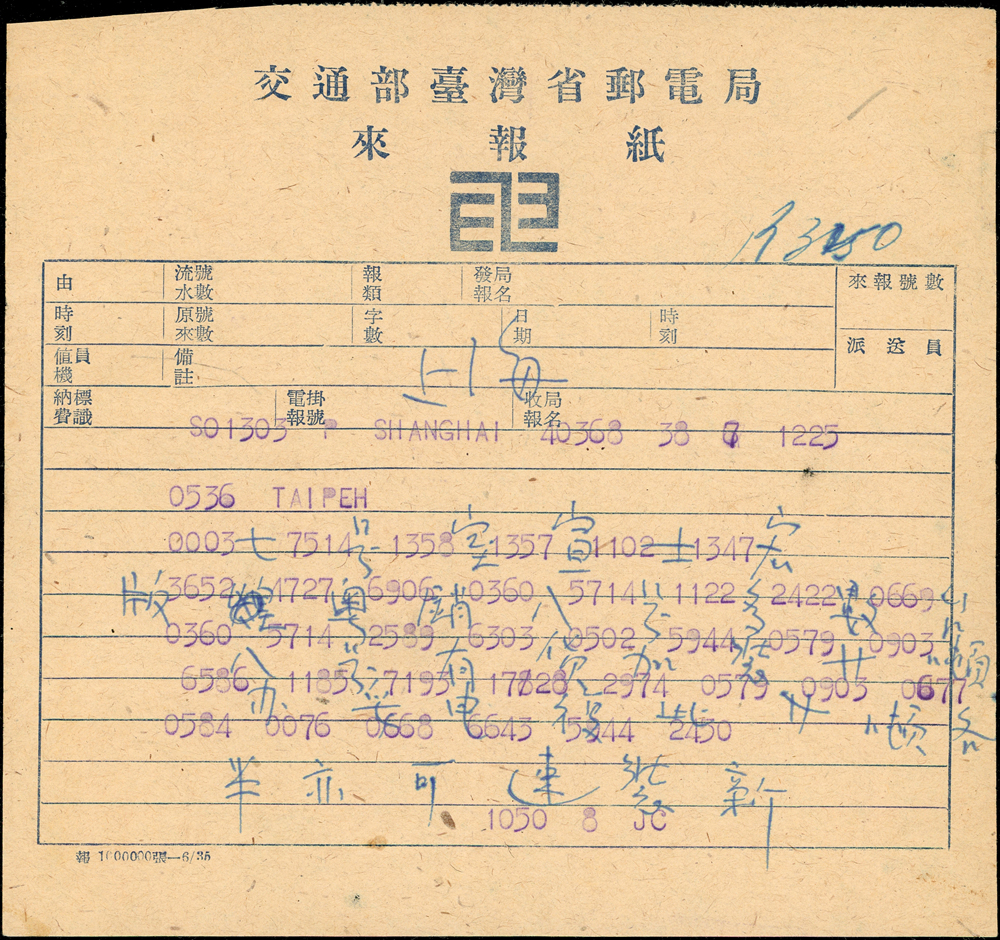 交通部臺灣省郵電局
來報紙
由 流水號數 報類 發報局名 來報號數
時刻 原來號數 字數 日期 時刻 派送員
值機員 備註
上海
納費標識 電報掛號 收報局名
SO1303 P SHANGHAI 40368 38 1225
0536 TAIPEH
0003 7514 1358 1357 1102 1347
七 号 室 宣 士 宏
3652 4727 6906 0360 5714 1122 2422 0669
版
0360 5714 2589 6303 0502 5944 0579 0903
6586 1185 7193 2974 0579 0903 0677
0584 0076 0668 6643 5944 2450
半 亦 可 速 裝 新
1050 8 JC
報 1000000張—6/35